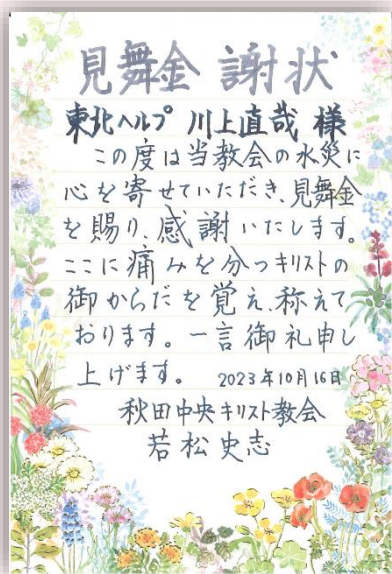 見舞金 謝状
東北ヘルプ 川上直哉 様
この度は当教会の水災に
心を寄せていただき、見舞金
を賜り、感謝いたします。
ここに痛みを分つキリストの
御からだを覚え、称えて
おります。一言御礼申し
上げます。 2023年10月16日
秋田中央キリスト教会
若松史志